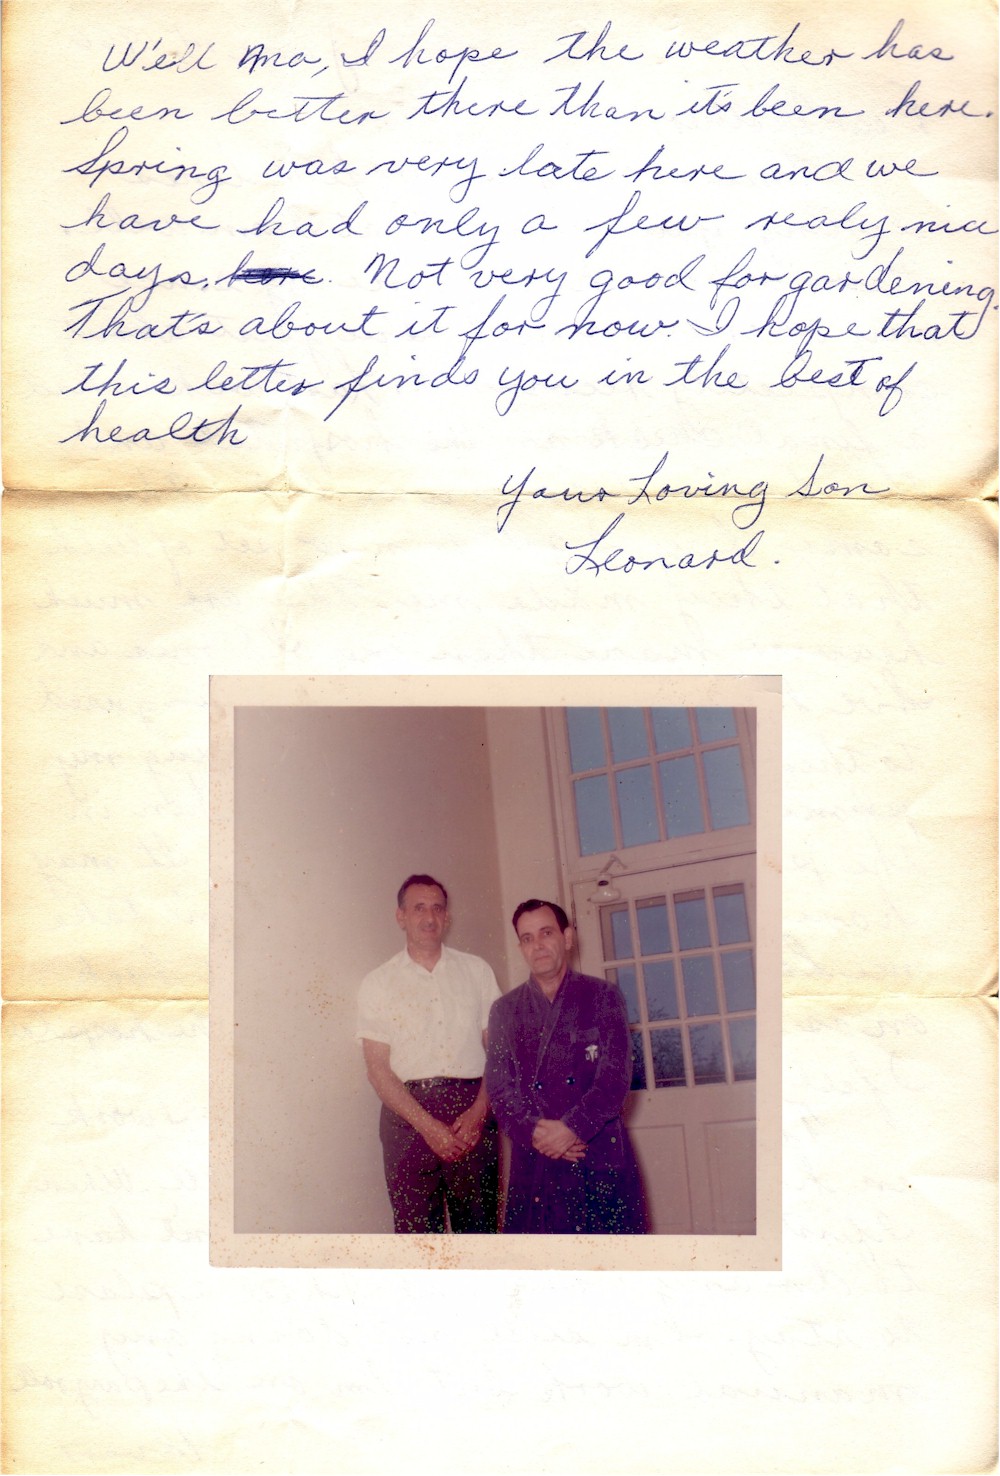 We'll Ma, I hope the weather has
been better there than it's been here.
Spring was very late here and we
have had only a few realy nice
days. here. Not very good for gardening.
That's about it for now. I hope that
this letter finds you in the best of
health
Your Loving Son
Leonard.